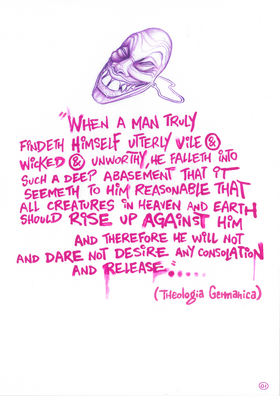 "When a man truly
findeth himself utterly vile &
wicked & unworthy, he falleth into
such a deep abasement that it
seemeth to him reasonable that
all creatures in heaven and earth
should rise up against him
and therefore he will not
and dare not desire any consolation
and release."......
(Theologia Germanica)
01